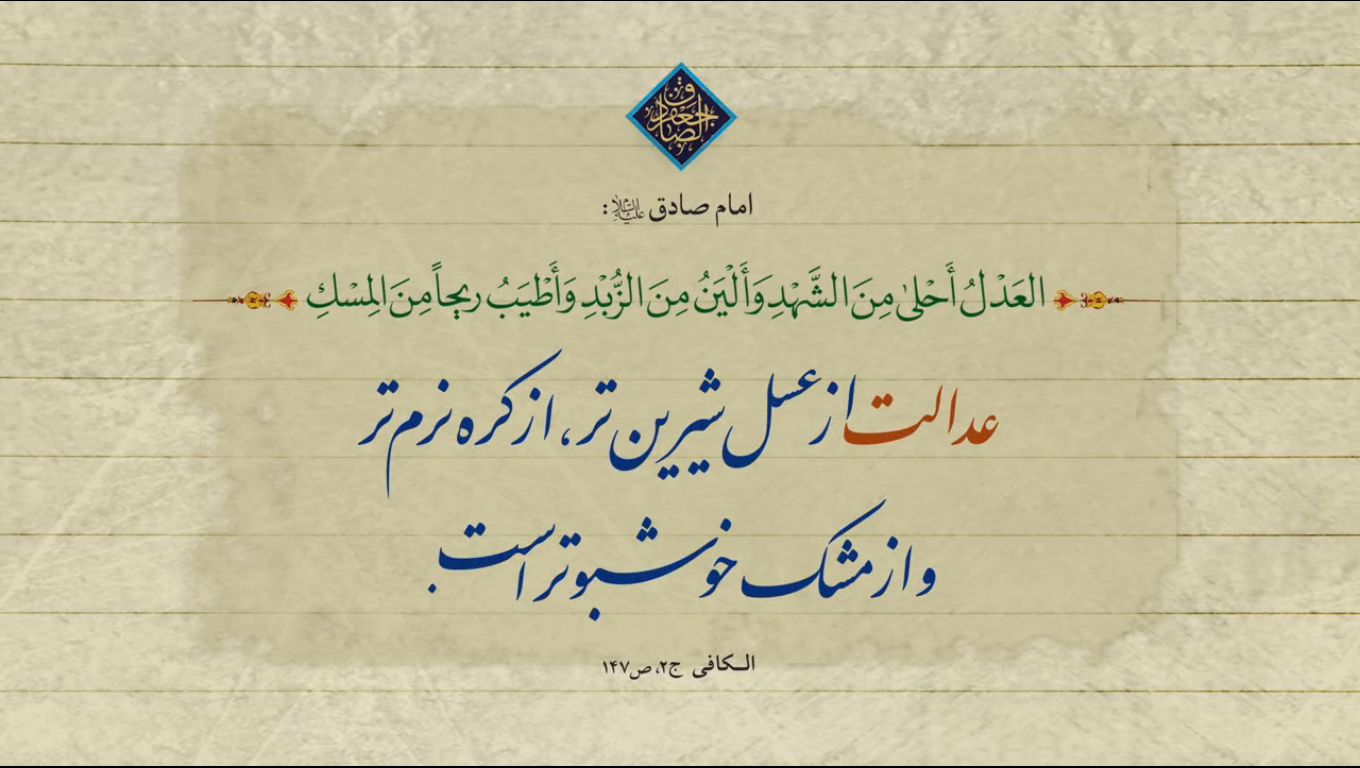 جعفر الصادق
امام صادق علیه‌السلام:
العَدْلُ أَحْلىٰ مِنَ الشَّهْدِ وَأَلْيَنُ مِنَ الزُّبْدِ وَأَطْيَبُ ريحاً مِنَ المِسْكِ
عدالت از عسل شیرین تر، از کره نرم تر
و از مشک خوشبوتر است.
الکافی ج۲، ص۱۴۷